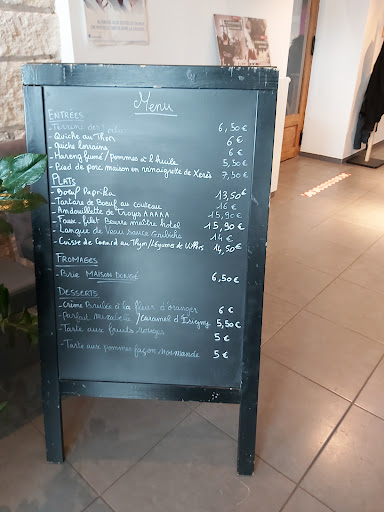 Menu
ENTRÉES
- Terrine des 6,50€
- Quiche au Thon 6€
- quiche lorraine 6€
- Hareng fumé / Pommes à l'huile 5,50€
- Pied de porc maison en vinaigrette de Xérès 7,50€
PLATS
- Boeuf Paprika 13,50€
- Tartare de Boeuf au couteau 16€
- Andouillette de Troyes AAAAA 15,90€
- Faux-filet Beurre maître hotel 15,90€
- Langue de Veau sauce Gribiche 14€
- Cuisse de Canard au Thym/Légumes de 14,50€
FROMAGES
- Brie MAISON DONGÉ 6,50€
DESSERTS
- Crème Brulée à la fleur d'oranger 6€
- Parfait Mirabelle /Caramel d'Isigny 5,50€
- Tarte aux fruits rouges 5€
- Tarte aux pommes façon Normande 5€